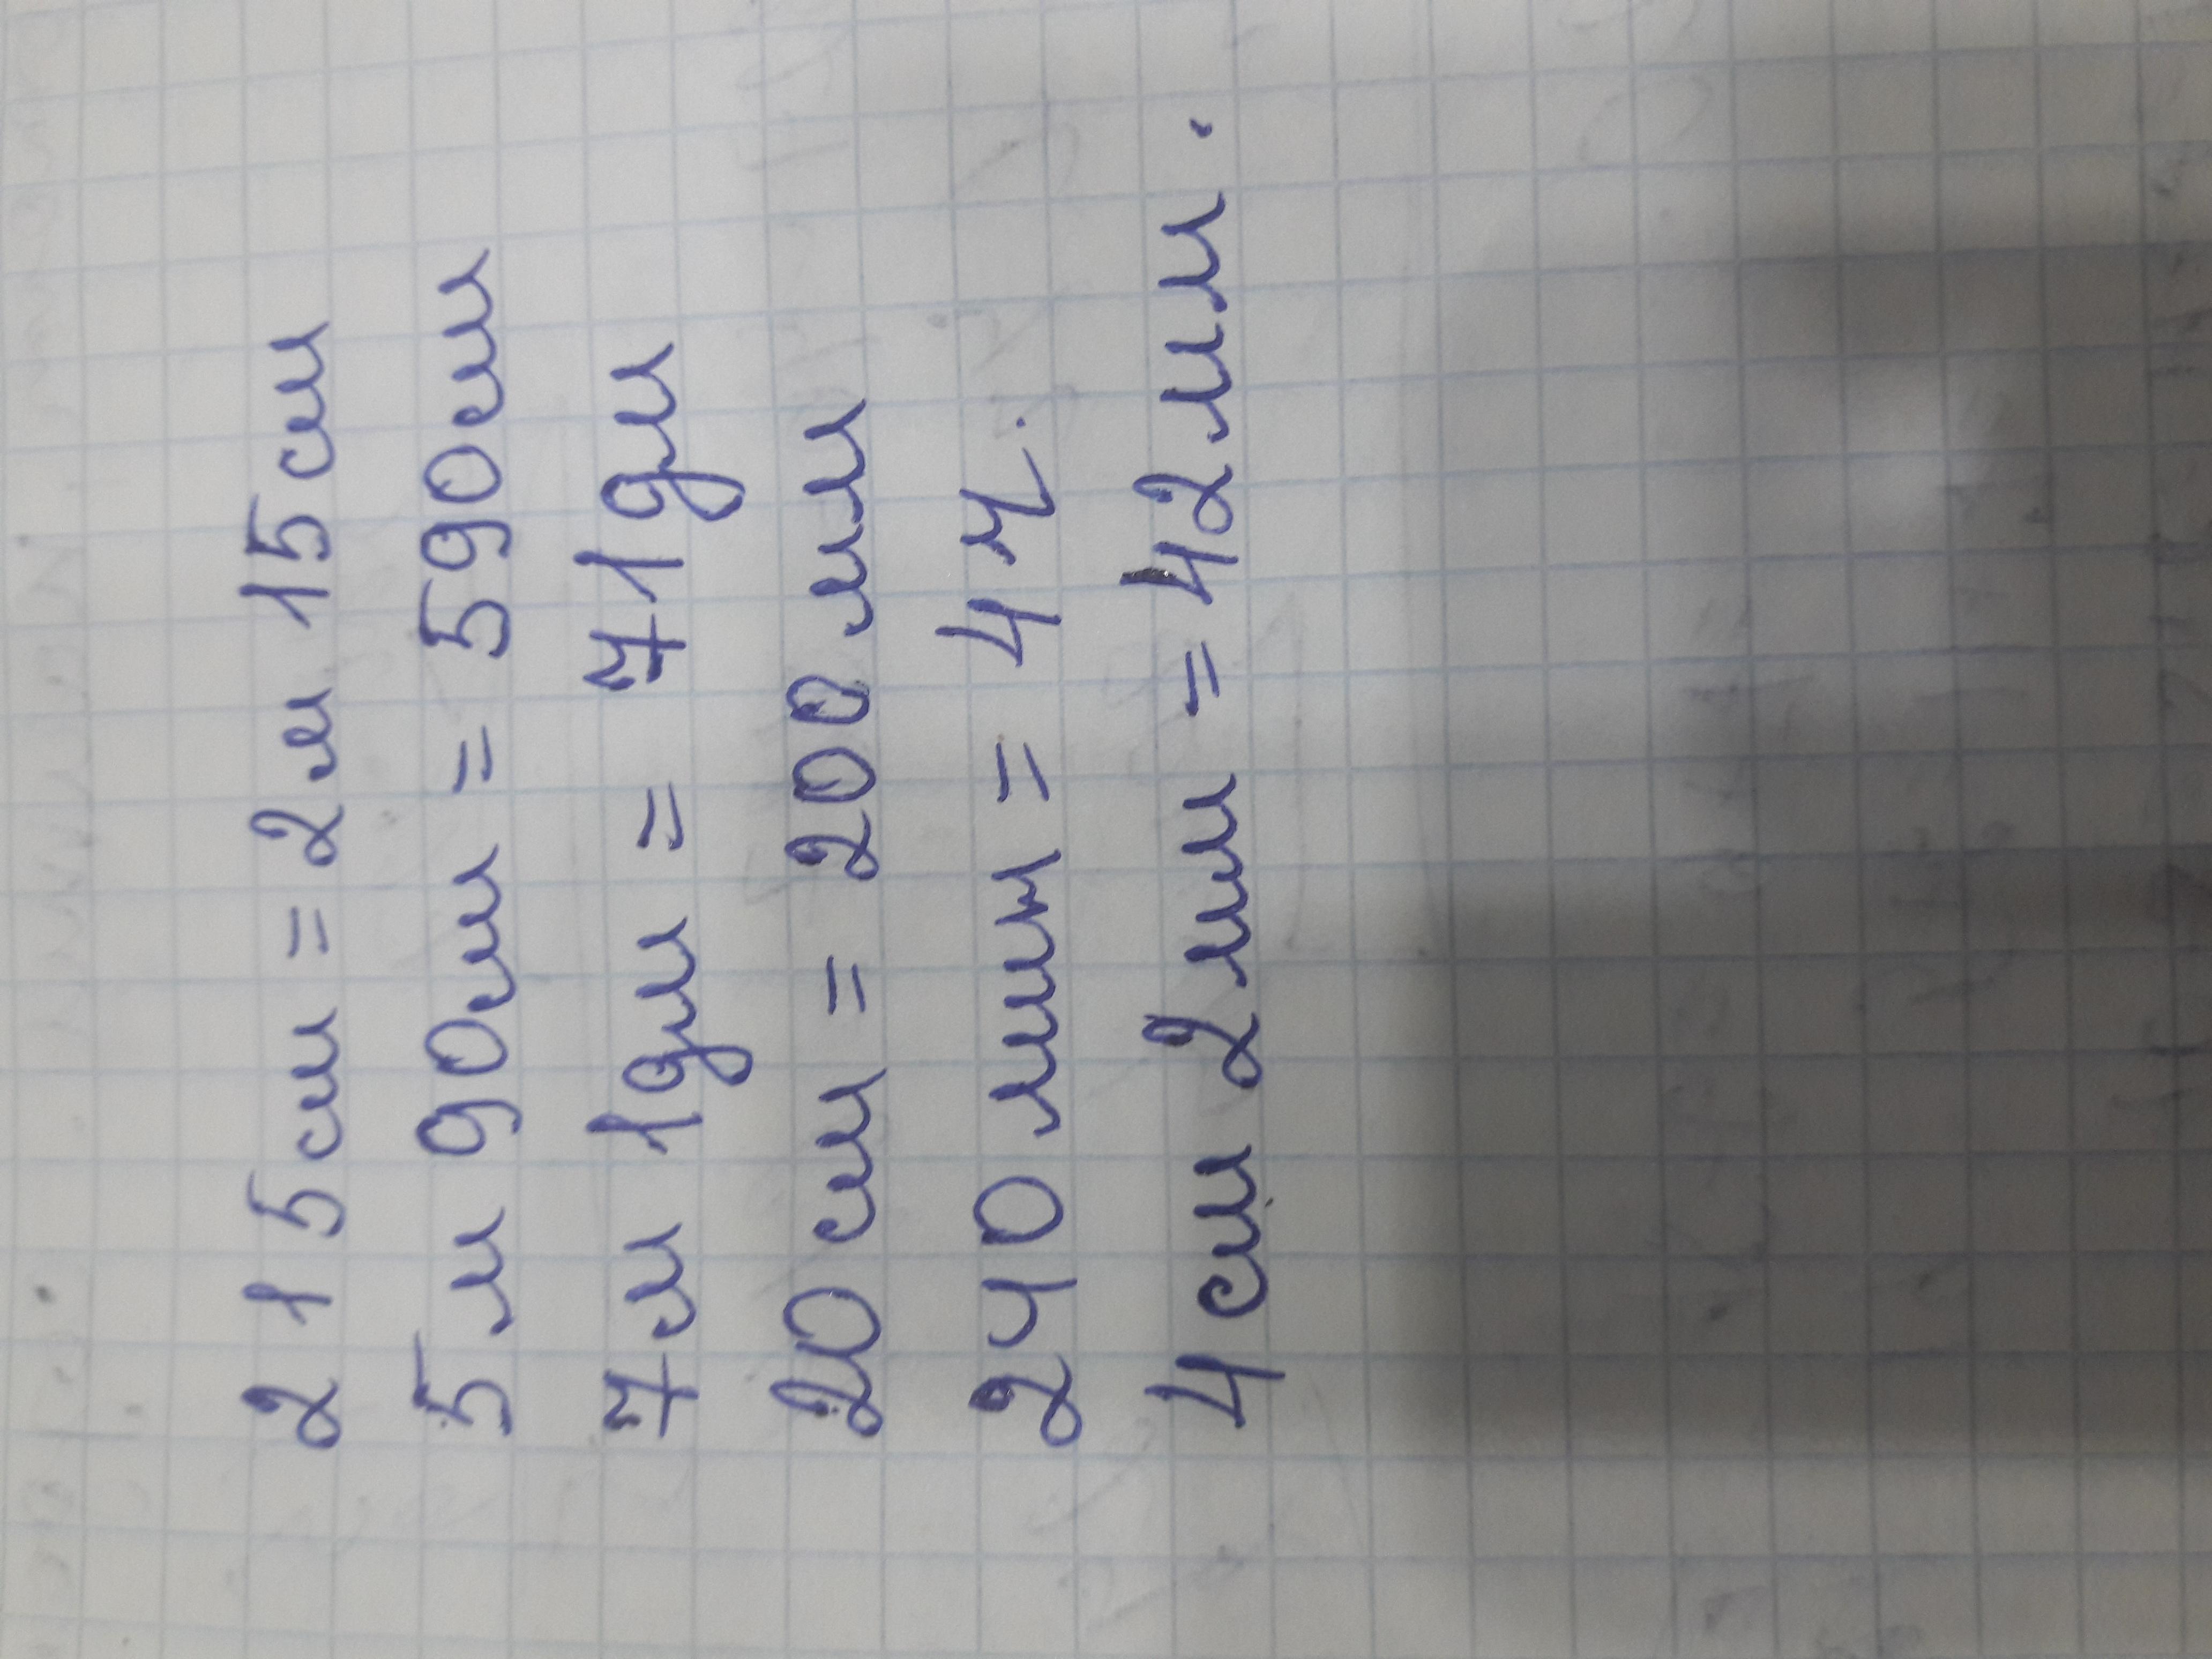 215 см = 2 м 15 см
5 м 90 см = 590 см
7 м 1 дм = 71 дм
20 см = 200 мм
240 мин = 4 ч.
4 см 2 мм = 42 мм.